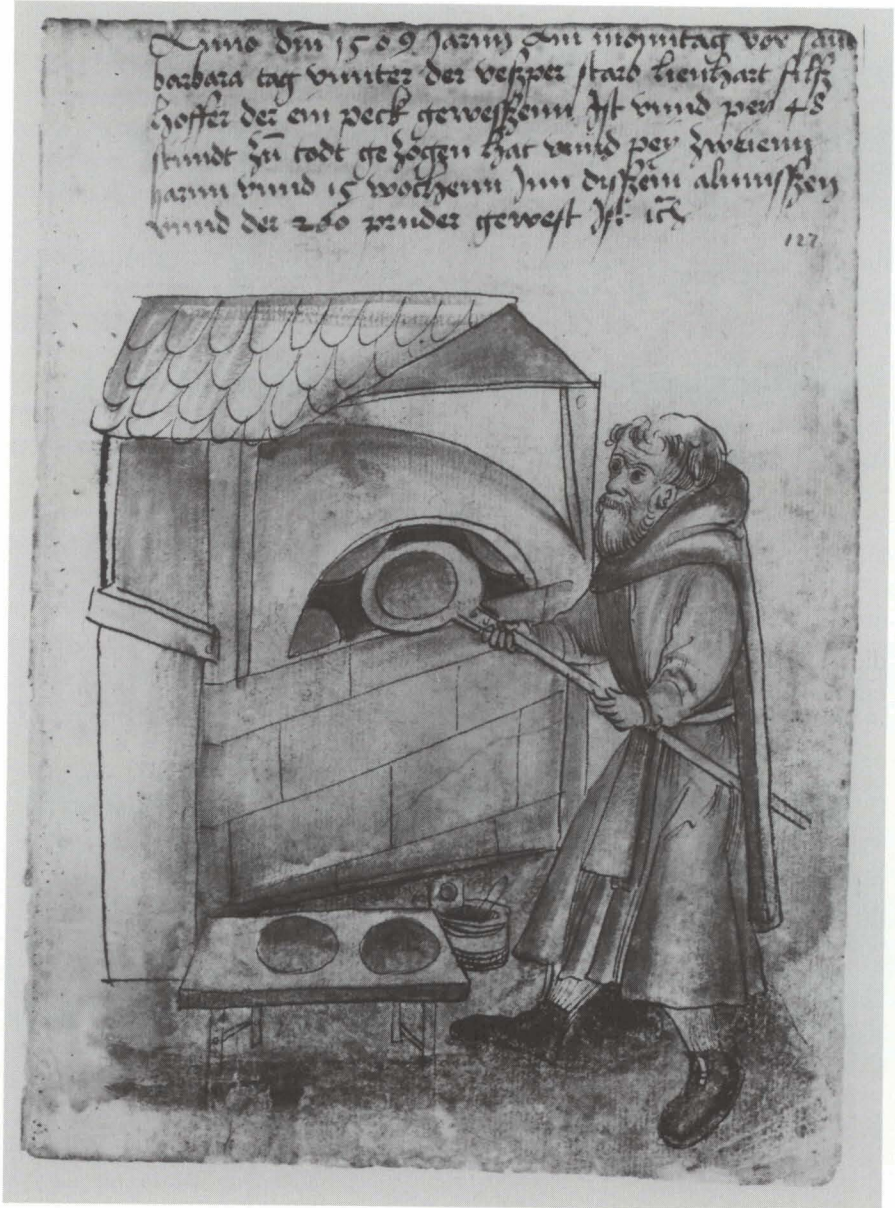 Anno dm̄ 1509 Jarnn Am moyntag vor san
barbara tag vnnter der veszper starb lienhart filsz
hoffer der ein peck geweszenn Jst vnnd pey 48
stundt zū todt gezogen hat vnnd pey zweienn
Jarnn vnnd 15 wochenn Jnn diszem almuszen
vnnd der 260 pruder gewest Jst
127